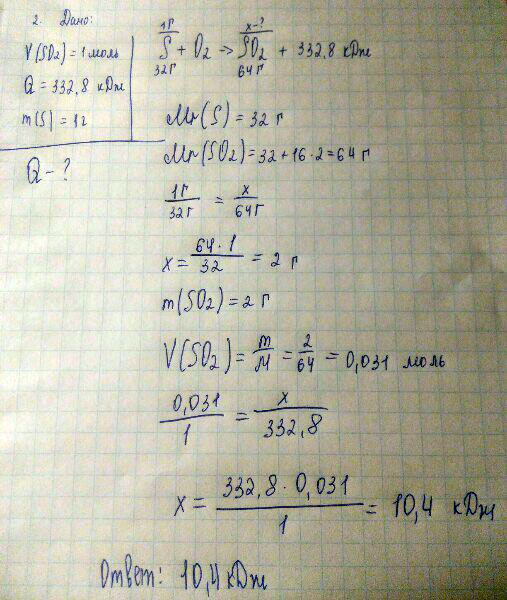 2. Дано:
V(SO₂) = 1 моль
Q = 332,8 кДж
m(S) = 1г
Q - ?
1г x-?
S + O₂ → SO₂ + 332,8 кДж
32г 64г
Mr(S) = 32 г
Mr(SO₂) = 32 + 16 · 2 = 64 г
1г/32г = x/64г
x = 64 · 1/32 = 2 г
m(SO₂) = 2 г
V(SO₂) = m/M = 2/64 = 0,031 моль
0,031/1 = x/332,8
x = 332,8 · 0,031/1 = 10,4 кДж
Ответ: 10,4 кДж